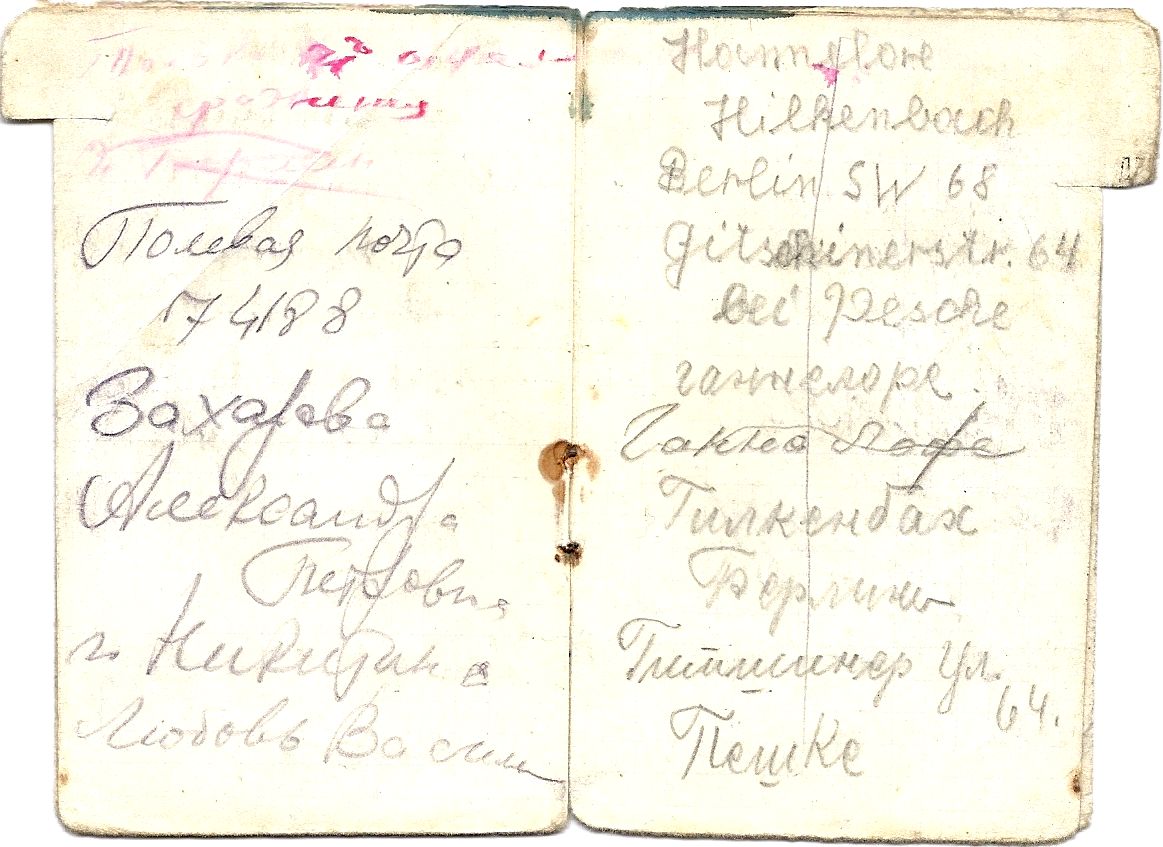 Полевая почта
74188
Захарова
Александра
Петровна
и Никитина
Любовь Васили
Hannelore
Hilkenbach
Berlin SW 68
Gitschinerstr. 64
bei Peschke
ганнелоре.
Ганна Лора
Гилкенбах
Берлинь
Гитшинер Ул.
64.
Пешке